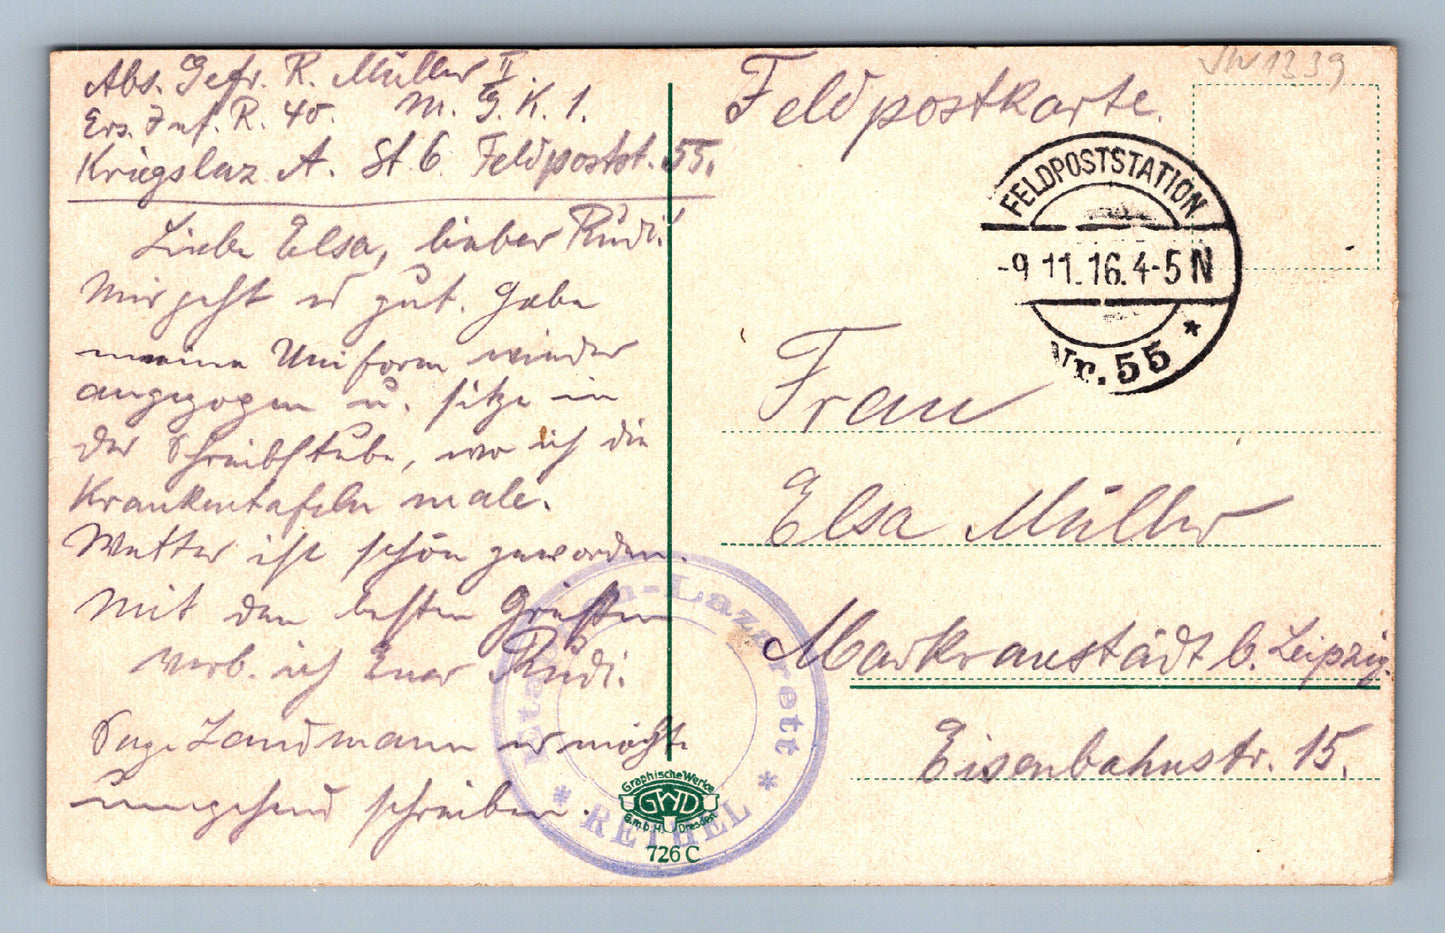 Abs. Gefr. R. Müller II.
Ers. Inf. R. 40. M. G. K. 1.
Kriegslaz. A. St. 6 Feldpostst. 55.
Liebe Elsa, lieber Rudi!
Mir geht es gut. Habe
meine Uniform wieder
angezogen u. sitze in
der Schreibstube, wo ich die
Krankentafeln male.
Wetter ist schön geworden.
Mit den besten Grüßen
verb. ich Euer Rudi.
Sage Landmann er möchte
umgehend schreiben.
Feldpostkarte.
VW1339
FELDPOSTSTATION
-9.11.16.4-5N
Nr. 55 *
Frau
Elsa Müller
Markranstädt b. Leipzig.
Eisenbahnstr. 15.
Etappen-Lazarett
* RETHEL *
Graphische Werke
GWD
G.m.b.H. Dresden
726 C